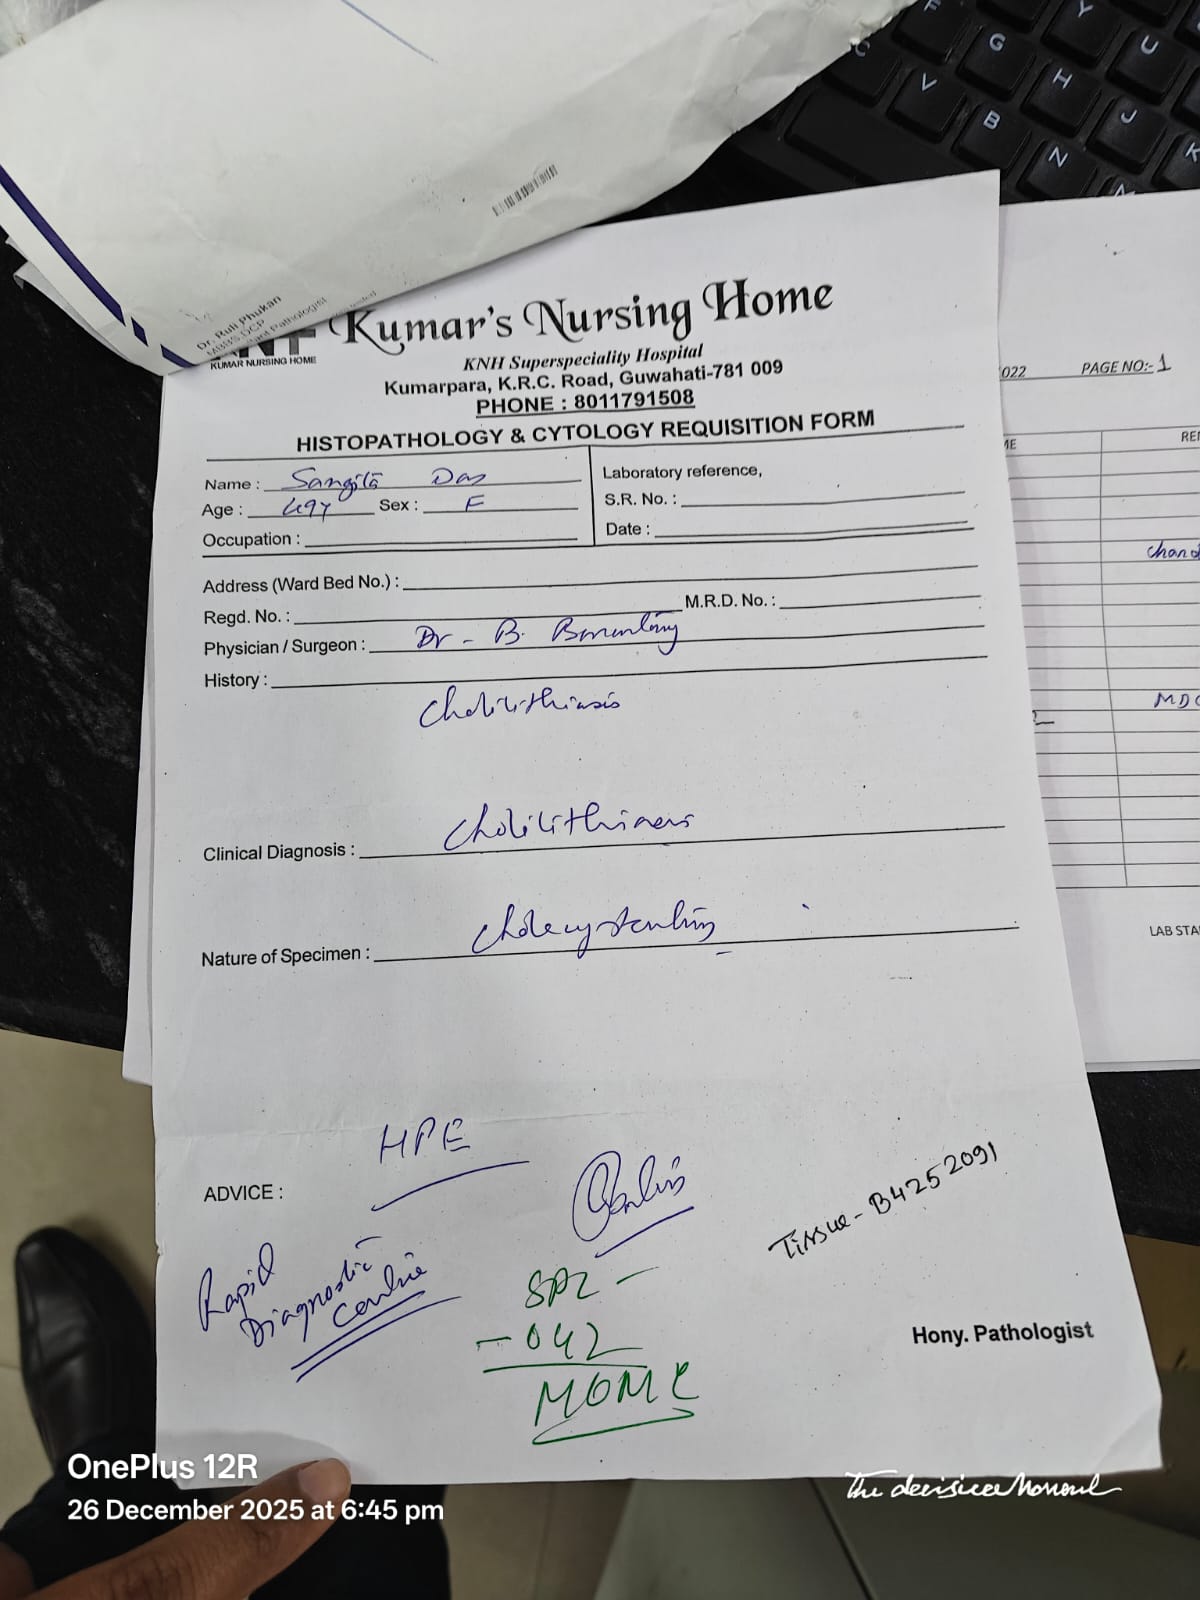 Dr. Ruli Phukan
MBBS, DCP
Pathologist
KUMAR NURSING HOME
Kumar's Nursing Home
KNH Superspeciality Hospital
Kumarpara, K.R.C. Road, Guwahati-781 009
PHONE : 8011791508
HISTOPATHOLOGY & CYTOLOGY REQUISITION FORM
Name : Sangita Das
Age : 49y Sex : F
Occupation :
Laboratory reference,
S.R. No. :
Date :
Address (Ward Bed No.) :
Regd. No. : M.R.D. No. :
Physician / Surgeon : Dr - B.
History :
Cholilithiasis
Clinical Diagnosis : Cholilithiasis
Nature of Specimen :
HPE
ADVICE :
Rapid
Diagnostic
Centre
Tissue - B4252091
SPL -
- 042
Hony. Pathologist
022 PAGE NO:- 1
LAB STA
C F V G B H N Y U J K M
OnePlus 12R
26 December 2025 at 6:45 pm